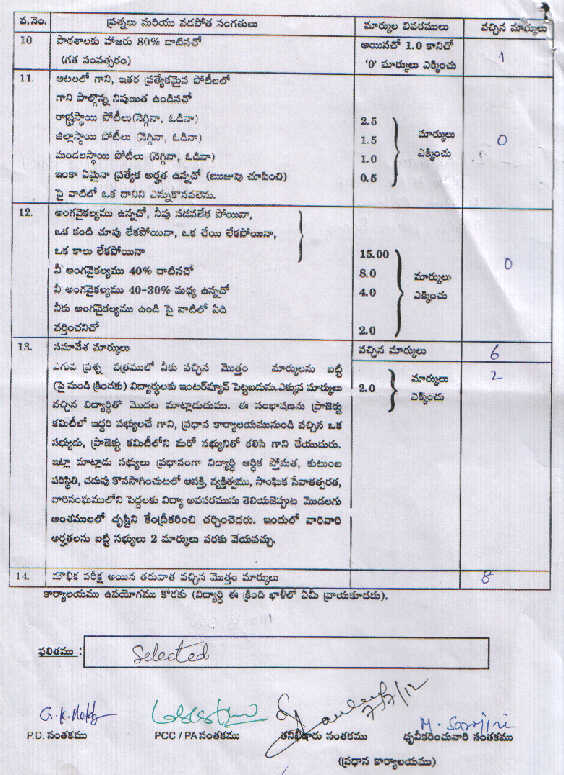 వ.నెం. ప్రశ్నలు మరియు వడపోత సంగతులు మార్కుల వివరములు వచ్చిన మార్కులు
10 పాఠశాలకు హాజరు 80% దాటినచో అయినలో 1.0 కానిచో 1
(గత సంవత్సరం) '0' మార్కులు ఎక్కించు
11. ఆటలలో గాని, ఇతర ప్రత్యేకమైన పోటీలలో
గాని పాల్గొన్న నిపుణుత ఉండినచో
రాష్ట్రస్థాయి పోటీలు(నెగ్గినా, ఓడినా) 2.5
జిల్లాస్థాయి పోటీలు (నెగ్గినా, ఓడినా) 1.5 మార్కులు 0
మండలస్థాయి పోటీలు (నెగ్గినా, ఓడినా) 1.0 ఎక్కించు
ఇంకా ఏమైనా ప్రత్యేక అర్హత ఉన్నచో (ఋజువు చూపించి) 0.5
పై వాటిలో ఒక దానిని ఎన్నుకొనవలెను.
12. అంగవైకల్యము ఉన్నచో, నీవు నడవలేక పోయినా,
ఒక కంటి చూపు లేకపోయినా, ఒక చేయి లేకపోయినా,
ఒక కాలు లేకపోయినా 15.00
నీ అంగవైకల్యము 40% దాటినచో 8.0 మార్కులు 0
నీ అంగవైకల్యము 40-30% మధ్య ఉన్నచో 4.0 ఎక్కించు
నీకు అంగవైకల్యము ఉండి పై వాటిలో ఏది
వర్తించనిచో 2.0
13. సమావేశ మార్కులు వచ్చిన మార్కులు 6
ఎగువ ప్రశ్న పత్రములో నీకు వచ్చిన మొత్తం మార్కులను బట్టి మార్కులు 2
(పై నుండి క్రిందకు) విద్యార్థులకు ఇంటర్వ్యూన్ పెట్టబడును.ఎక్కువ మార్కులు 2.0 ఎక్కించు
వచ్చిన విద్యార్థితో మొదట మాట్లాడుదుము. ఈ సంభాషణను ప్రాజెక్టు
కమిటీలో ఇద్దరి సభ్యులచే గాని, ప్రధాన కార్యాలయమునుండి వచ్చిన ఒక
సభ్యుడు, ప్రాజెక్టు కమిటీలోని మరో సభ్యునితో కలిసి గాని చేయుదురు.
ఇట్లా మాట్లాడు సభ్యులు ప్రధానంగా విద్యార్థి ఆర్థిక స్తోమత, కుటుంబ
పరిస్థితి, చదువు కొనసాగించుటలో ఆసక్తి, వ్యక్తిత్వము, సాంఘిక సేవాతత్పరత,
వారిసంఘములోని పెద్దలకు విద్యా అవసరమును తెలియజెప్పుట మొదలగు
అంశములలో దృష్టిని కేంద్రీకరించి చర్చించెదరు. ఇందులో వారివారి
అర్హతలను బట్టి సభ్యులు 2 మార్కులు వరకు వేయవచ్చు.
14. మౌఖిక పరీక్ష అయిన తరువాత వచ్చిన మొత్తం మార్కులు 8
కార్యాలయము ఉపయోగము కొరకు (విద్యార్థి ఈ క్రింది ఖాళీలో ఏమీ వ్రాయకూడదు).
ఫలితము : Selected
7/7/12
M. Sarojini
P.D. సంతకము PCC / PA సంతకము తనిఖీదారు సంతకము ధృవీకరించువారి సంతకము
(ప్రధాన కార్యాలయము)